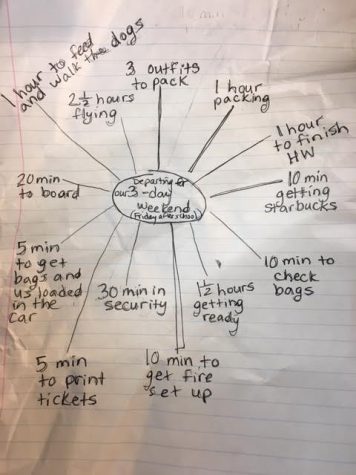 1 hour to feed
and walk the dogs
3 outfits
to pack
1 hour
packing
2 1/2 hours
flying
1 hour
to finish
HW
20 min
to board
Departing for
our 3-day
weekend
(Friday after school)
10 min
getting
starbucks
5 min
to get
bags and
us loaded
in the
car
30 min in
security
1 1/2 hours
getting
ready
10 min to
check
bags
5 min
to print
tickets
10 min to
get fire
set up